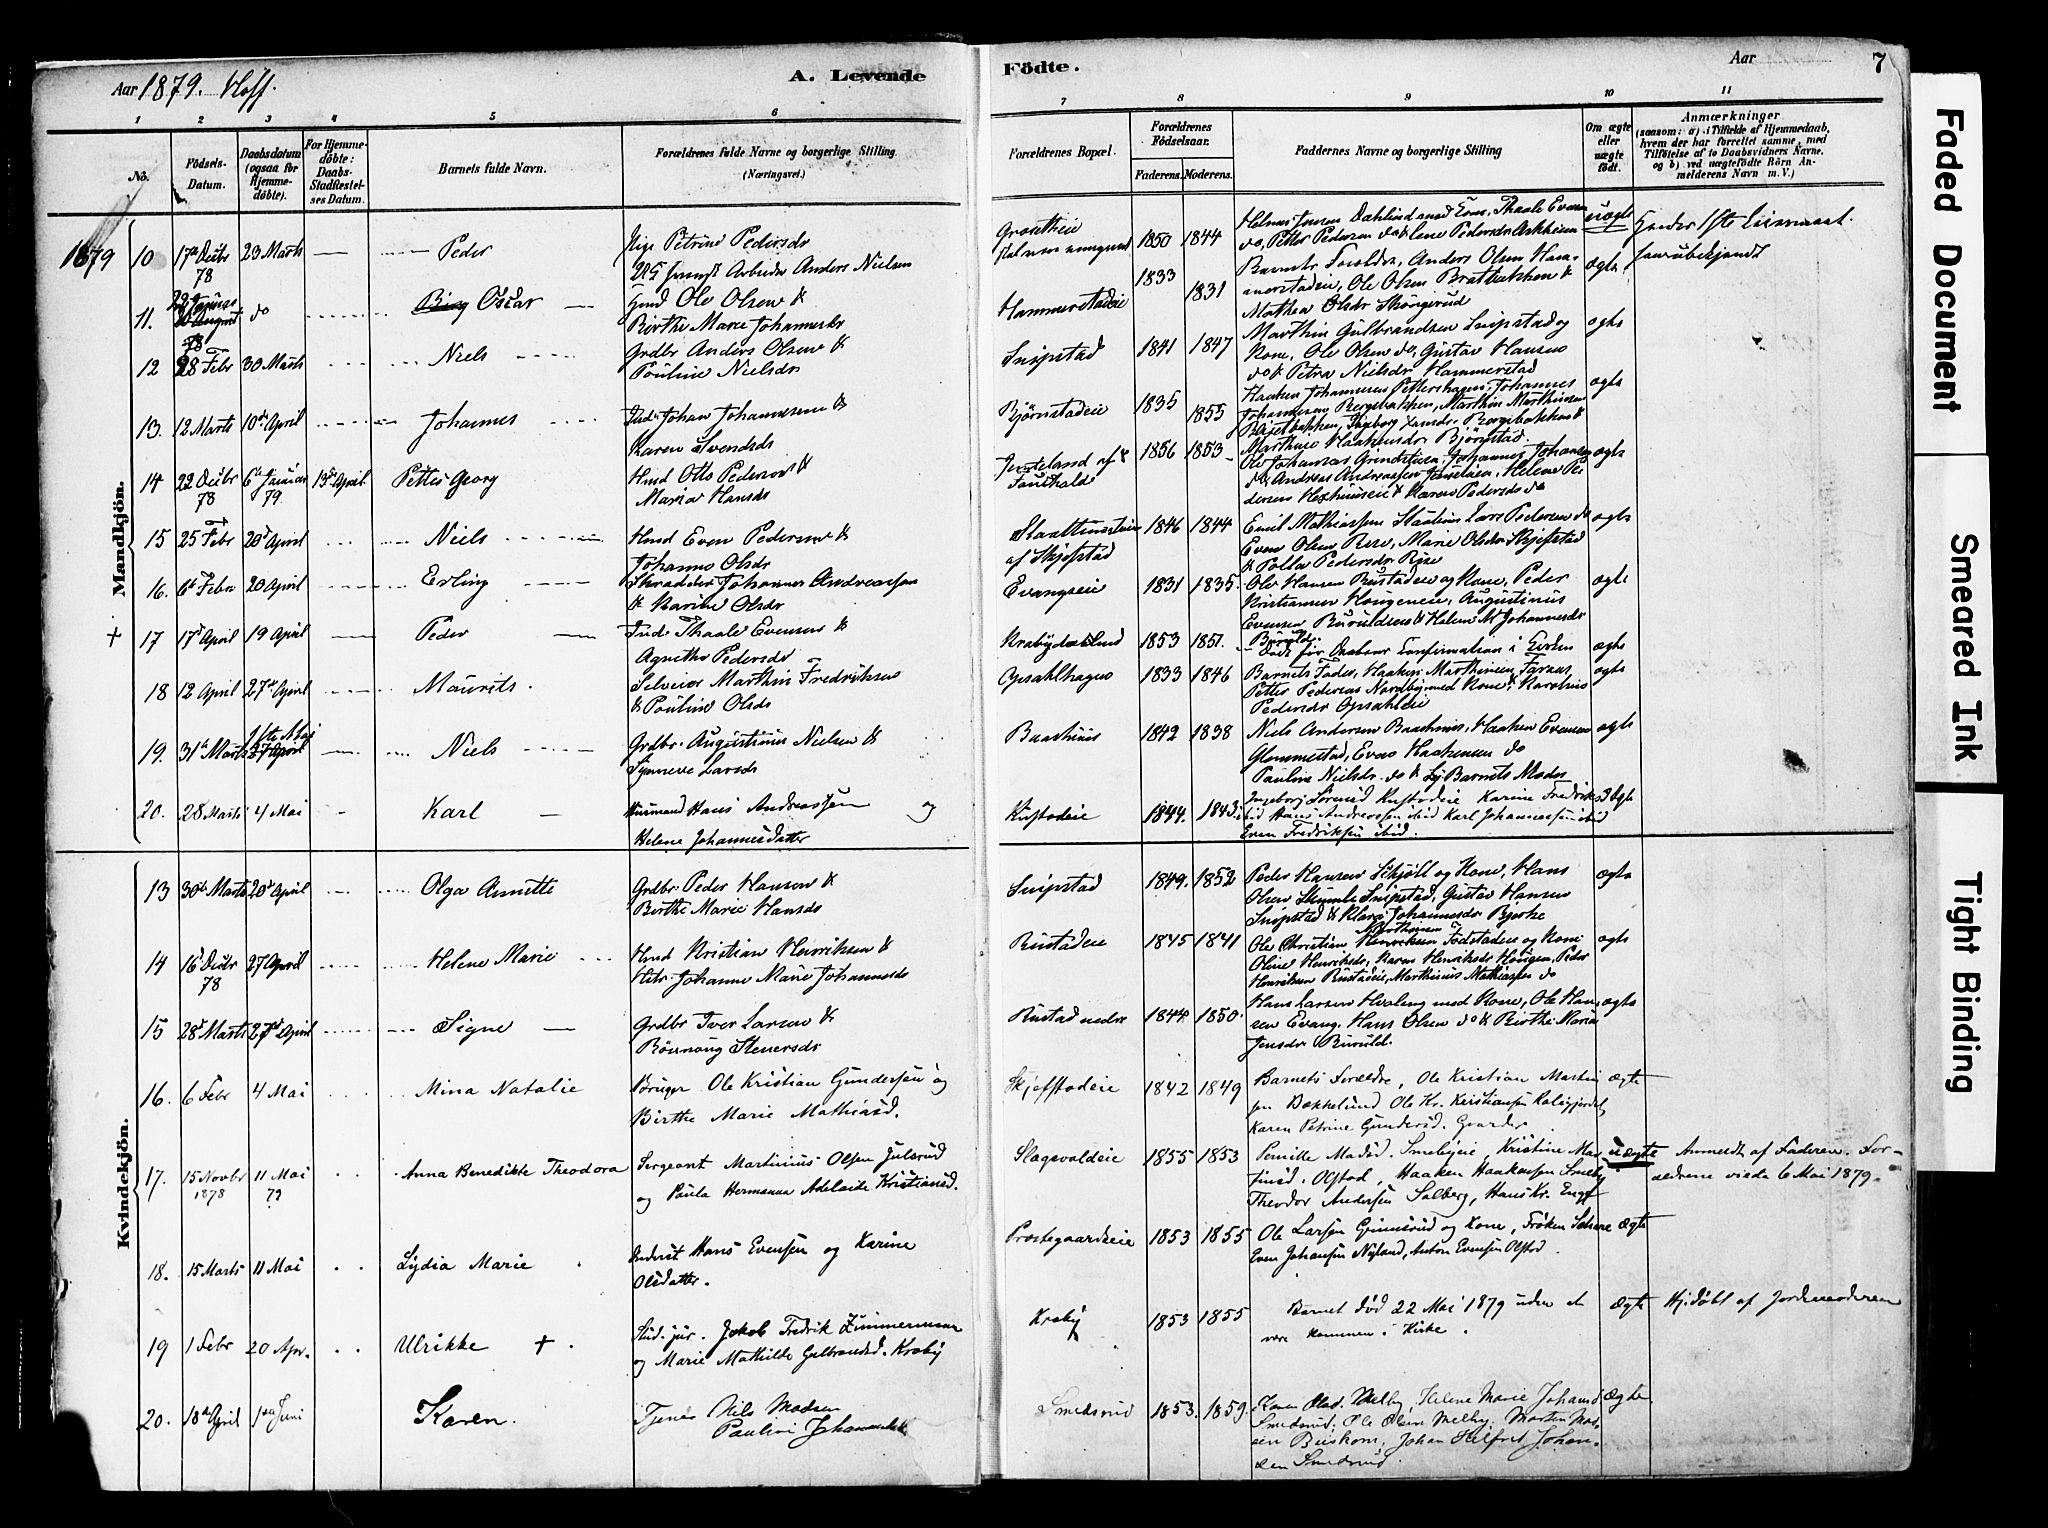 Aar 1879. Hoff.
A. Levende
Födte.
Aar
7
1 2 3 4 5 6 7 8 9 10 11
No.
Födsels-Datum.
Daabsdatum (ogsaa for Hjemme-döbte).
For Hjemme-döbte: Daabs-Stadfæstel-ses Datum.
Barnets fulde Navn.
Forældrenes fulde Navne og borgerlige Stilling
(Næringsvei.)
Forældrenes Bopæl.
Forældrenes Födselsaar.
Faderens. Moderens.
Faddernes Navne og borgerlige Stilling
Om ægte eller uægte födt.
Anmærkninger
(saasom: a) i Tilfælde af Hjemmedaab, hvem der har forrettet samme, med Tilföielse af to Daabsvidners Navne, og b) ved uægtefödte Börn An-melderens Navn m. V.)
Mandkjön.
1879 10 17de Decbr 78 23 Marts Peder
Pige Petrine Pedersdr
Arbeider Anders Nielsen
1850 1844
Petter Pedersen do & Lene Pedersdr
uægte
11. 78 do Oscar
Ole Olsen &
Birthe Marie Johannesdr
Hammerstadeie 1833 1831
Barnets Forældre, Anders Olsen Ham-
merstadeie, Ole Olsen Bratbakken &
Mathea Olsdr Skongerud
ægte
12 28 Febr 30 Marts Niels
Grdbr Anders Olsen &
Pouline Nielsdr
Snipstad 1841 1847
Marthin Gulbrandsen Snipstad og
Kone, Ole Olsen do, Gustav Hansen
do & Petra Nielsdr Hammerstad
ægte
13. 12 Marts 10de April Johannes
Inds Johan Johannesen &
Karen Svendsdr
Bjørnstadeie 1835 1855
Haaken Johannesen Pettershagen, Johannes
Johannesen Bergsbakken, Marthin Marthinsen
Marthie Haakensdr Bjørnstad.
ægte
14 22 Decbr 78 6te Januar 79 13de April Petter Georg
Hmd Otto Pedersen &
Maria Hansdr
1856 1853
Ole Johansen Johannes Johansen
do, Andreas Andreassen Helene Pe-
dersen & Karen Pedersdr do
ægte
15 25 Febr 20de April Niels
Hmd Even Pedersen &
Johanne Olsdr
af Skjefstad 1846 1844
Emil Mathiassen Lars Pedersen do
Even Olsen Rise, Marie Olsdr Skjefstad
& Pedersdr Rise
ægte
16. 6te Febr 20 April Erling
Skrædder Johannes Andreassen
& Karine Olsdr
Evangseie 1831 1835.
Ole Hansen Rustadeie og Kone, Peder
Kristiansen Haugeneie, Augustinus
Evensen & Helene M Johannesdr
ægte
+ 17 17de April 19 April Peder
Inds Thaale Evensen &
Agnethe Pedersdr
1853 1851.
Død før Daabens Confirmation i Kirken
ægte
18 12 April 27de April Maurits.
Selveier Marthin Fredriksen
& Pouline Olsdr
Opsahlhagen 1833 1846
Barnets Fader, Haaken Marthinsen
Petter Pedersen Nordby med Kone & Karoline
Pedersdr Opsahleie
ægte
19. 31te Marts 1ste Mai 27 April Niels
Grdbr. Augustinus Nielsen &
Synneve Larsdr
Baashuus 1842 1838
Niels Andersen Baashuus, Haaken Evensen
Glemmestad, Even Haakensen do
Pauline Nielsdr. do & Barnets Moder
ægte
20. 28 Marts 4 Mai Karl
Husmand Hans Andreassen og
Helene Johannesdatter
1844. 1843
Ingeborg Karine Fredriksd
ibid Hans Andreassen ibid Karl Johannessen ibid
Even Fredriksen ibid.
ægte
Kvindekjön.
13 30te Marts 20de April Olga Annette
Grdbr Peder Hansen &
Birthe Marie Hansdr
Snipstad 1849. 1852
Peder Hansen Skjøll og Kone, Hans
Olsen Snipstad, Gustav Hansen
Snipstad & Klara Johannesdr Bjerke
ægte
14 16de Decbr 78 27 April Helene Marie
Hmd Kristian Henriksen &
Johanne Marie Johannesdr
Rustadeie 1845 1841
Ole Christian Marthinsen Henriksen Fodstadeie og Kone
Oline Henriksdr, Karen Henriksdr Haugen, Peder
Henriksen Rustadeie, Marthinus Mathiassen do
ægte
15 28de Marts 27de April Signe
Grdbr Iver Larsen &
Rönnaug Stenersdr
Rustad nedre 1844. 1850.
Hans Larsen Hvaleng med Kone, Ole Han-
sen Evang. Hans Olsen do & Birthe Marie
Jensdr
ægte
16. 6 Febr 4 Mai Mina Natalie
Bruger Ole Kristian Gundersen og
Birthe Marie Mathiasd.
Skjefstadeie 1842 1849
Barnets Forældre, Ole Kristian Martin
sen Bakkelund Ole Kr. Kristiansen
Karen Petrine Gundersd.
ægte
17. 15 Novbr 1878 11 Mai 79 Anna Benedikte Theodora
Sergeant Martinius Olsen Julsrud
og Paula Hermanna Adelaide Kristiansd.
Slagsvoldeie 1855 1853
Pernille Madsd. Smebyeie, Kristine Mar
tinsd. Olstad, Haaken Haakensen Smeby
Theodor Andersen Solberg, Hans Kr. Eng
uægte
Anmeldt af Faderen. For-
ældrene viede 6 Mai 1879.
18. 15 Marts 11 Mai Lydia Marie
Inderst Hans Evensen og Karine
Olsdatter.
Præstegaardseie 1853 1855
Ole Larsen Grimsrud og Kone, Frøken
Even Johansen Nyland, Anton Evensen Olstad.
ægte
19 1 Febr 20 Apr. Ulrikke +
Stud. jur. Jakob Fredrik Zimmermann
og Marie Mathilde Gulbrandsd. Kraby
Kraby 1853 1855
Barnet død 22 Mai 1879 uden at
være kommen i Kirke.
ægte
Hj. döbt af Jordemoderen
20. 18de April 1ste Juni Karen.
Tjener Nils Madsen
Pauline
Smedsrud 1853. 1859.
Karen Olsd. Melby, Helene Marie Johansd
Smedsrud, Ole Olsen Melby. Morten Mad
sen Buskom, Johan Helfred Johan
sen Smedsrud.
ægte
Faded Document
Smeared Ink
Tight Binding